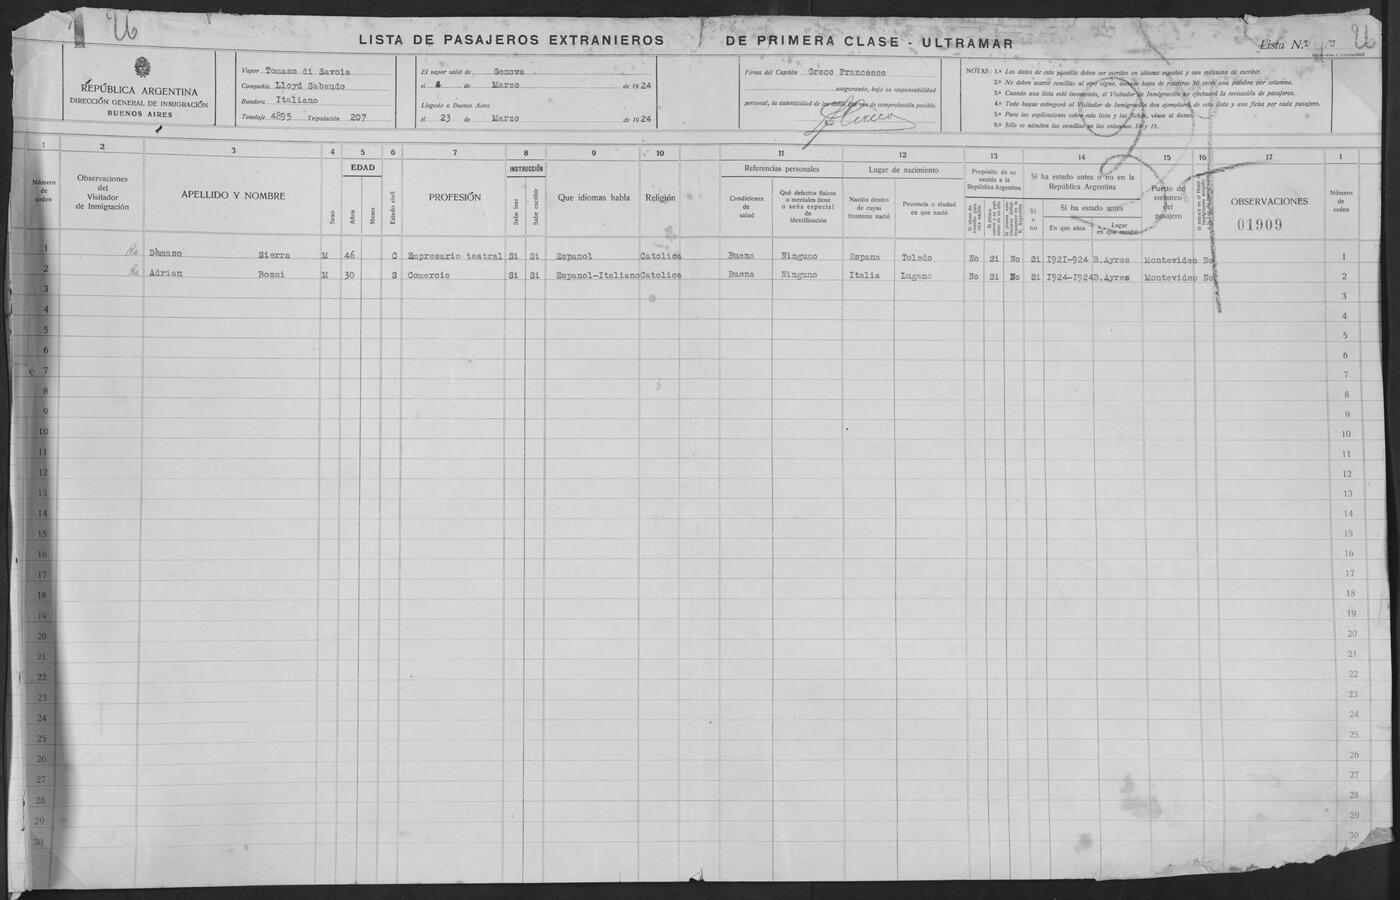 LISTA DE PASAJEROS EXTRANIEROS DE PRIMERA CLASE - ULTRAMAR
Lista N.
REPÚBLICA ARGENTINA
DIRECCIÓN GENERAL DE INMIGRACIÓN
BUENOS AIRES
Vapor Tomaso di Savoia
Compañía Lloyd Sabaudo
Bandera Italiano
Tonelaje 4895 Tripulación 207
El vapor salió de Genova
el de Marzo de 1924
Llegado a Buenos Aires
el 23 de Marzo de 1924
Firma del Capitán Greco Francesco
asegurando, bajo su responsabilidad
personal, la autenticidad de los datos de comprobación posible.
NOTAS: 1.ª Los datos de esta planilla deben ser escritos en idioma español y con máquina de escribir.
2.ª No deben usarse comillas ni otro signo, aunque haya de repetirse 30 veces una palabra por columna.
3.ª Cuando una lista esté incompleta, el Visitador de Inmigración no efectuará la revisación de pasajeros.
4.ª Todo buque entregará al Visitador de Inmigración dos ejemplares de esta lista y una ficha por cada pasajero.
5.ª Para las explicaciones sobre esta lista y las fichas, véase al dorso.
6.ª Sólo se admiten las comillas en las columnas 10 y 15.
1 2 3 4 5 6 7 8 9 10 11 12 13 14 15 16 17 1
Número de orden
Observaciones del Visitador de Inmigración
APELLIDO Y NOMBRE
Sexo
EDAD
Años
Meses
Estado civil
PROFESIÓN
INSTRUCCIÓN
Sabe leer
Sabe escribir
Que idiomas habla
Religión
Referencias personales
Condiciones de salud
Qué defectos físicos o mentales tiene o seña especial de identificación
Lugar de nacimiento
Nación dentro de cuyas fronteras nació
Provincia o ciudad en que nació
Propósito de su venida a la República Argentina
Si ha estado antes o no en la República Argentina
Si o no
Si ha estado antes
En que años
Lugar en que residió
Puerto de embarco del pasajero
OBSERVACIONES
01909
Número de orden
1 Dàmaso Sierra M 46 C Empresario teatral Si Si Espanol Catolica Buena Ninguno Espana Toledo No Si No Si I92I-924 B.Ayres Montevideo No 1
2 Adrian Bossi M 30 S Comercio Si Si Espanol-Italiano Catolica Buena Ninguno Italia Lugano No Si No Si I924-I924 B.Ayres Montevideo No 2
3 3
4 4
5 5
6 6
7 7
8 8
9 9
10 10
11 11
12 12
13 13
14 14
15 15
16 16
17 17
18 18
19 19
20 20
21 21
22 22
23 23
24 24
25 25
26 26
27 27
28 28
29 29
30 30